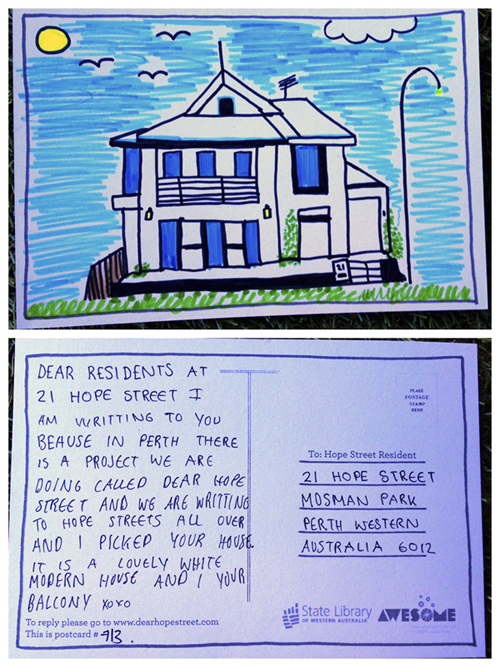 DEAR RESIDENTS AT
21 HOPE STREET I
AM WRITTING TO YOU
BEAUSE IN PERTH THERE
IS A PROJECT WE ARE
DOING CALLED DEAR HOPE
STREET AND WE ARE WRITTING
TO HOPE STREETS ALL OVER
AND I PICKED YOUR HOUSE.
IT IS A LOVELY WHITE
MODERN HOUSE AND I YOUR
BALCONY xoxo
To reply please go to www.dearhopestreet.com
This is postcard #
PLACE
POSTAGE
STAMP
HERE
To: Hope Street Resident
21 HOPE STREET
MOSMAN PARK
PERTH WESTERN
AUSTRALIA 6012
State Library
OF WESTERN AUSTRALIA
AWESOME